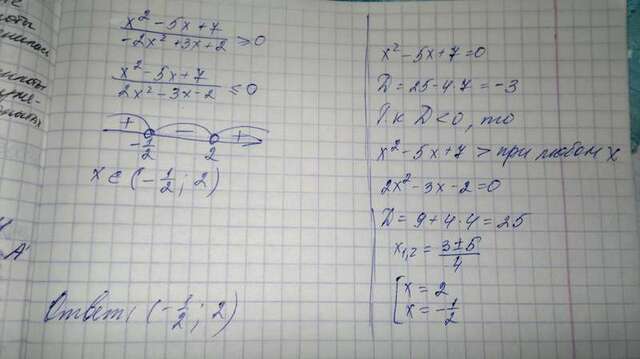 x² - 5x + 7 / -2x² + 3x + 2 ≥ 0
x² - 5x + 7 / 2x² - 3x - 2 ≤ 0
+ - +
-1/2 2
x ∈ (-1/2; 2)
Ответ: (-1/2; 2)
x² - 5x + 7 = 0
D = 25 - 4·7 = -3
Т.к D < 0, то
x² - 5x + 7 > при любом x
2x² - 3x - 2 = 0
D = 9 + 4·4 = 25
x1,2 = 3±5 / 4
[ x = 2
x = -1/2